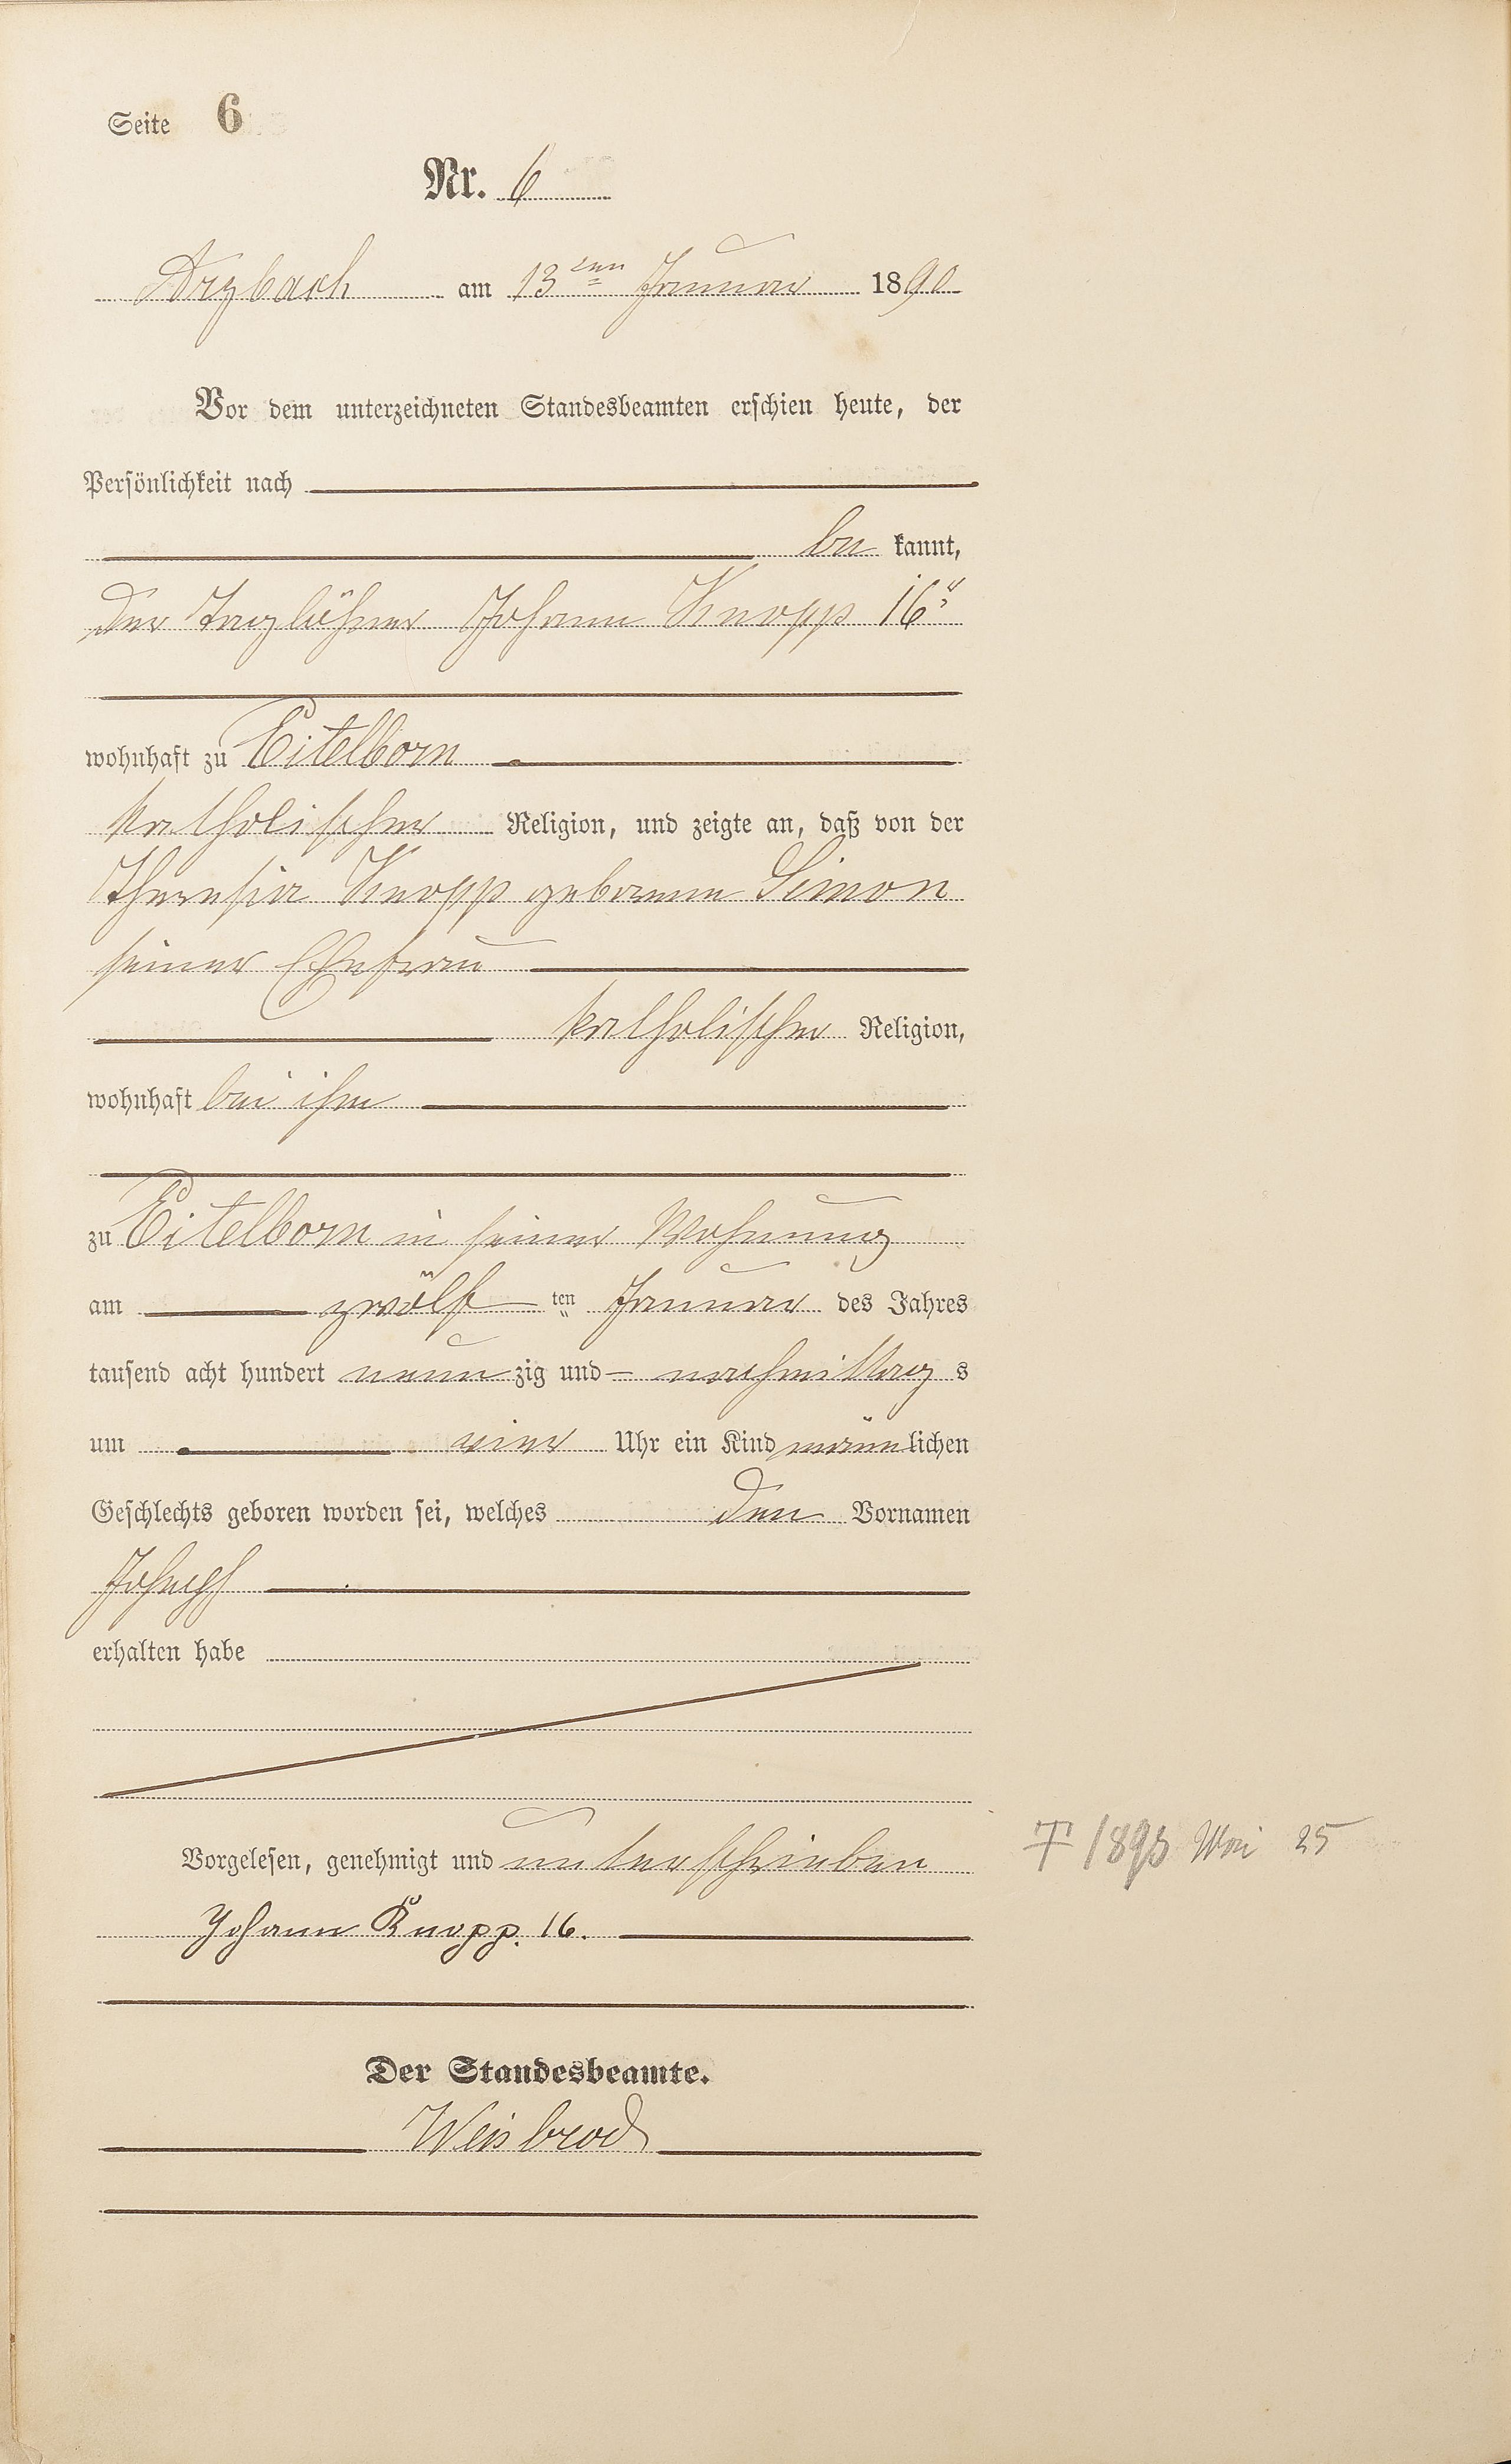 Seite 6
Nr. 6
Arzbach am 13ten Januar 1890
Vor dem unterzeichneten Standesbeamten erschien heute, der
Persönlichkeit nach
be kannt,
der Taglöhner Johann Knopp 16r
wohnhaft zu Eitelborn
katholischer Religion, und zeigte an, daß von der
Theresia Knopp geborenen Simon
seiner Ehefrau
katholischer Religion,
wohnhaft bei ihm
zu Eitelborn in seiner Wohnung
am zwölf ten Januar des Jahres
tausend acht hundert neun zig und – nachmittag s
um vier Uhr ein Kind männlichen
Geschlechts geboren worden sei, welches den Vornamen
Joseph
erhalten habe
Vorgelesen, genehmigt und unterschrieben
† Mai 25
Johann Knopp. 16.
Der Standesbeamte.
Weisbrod